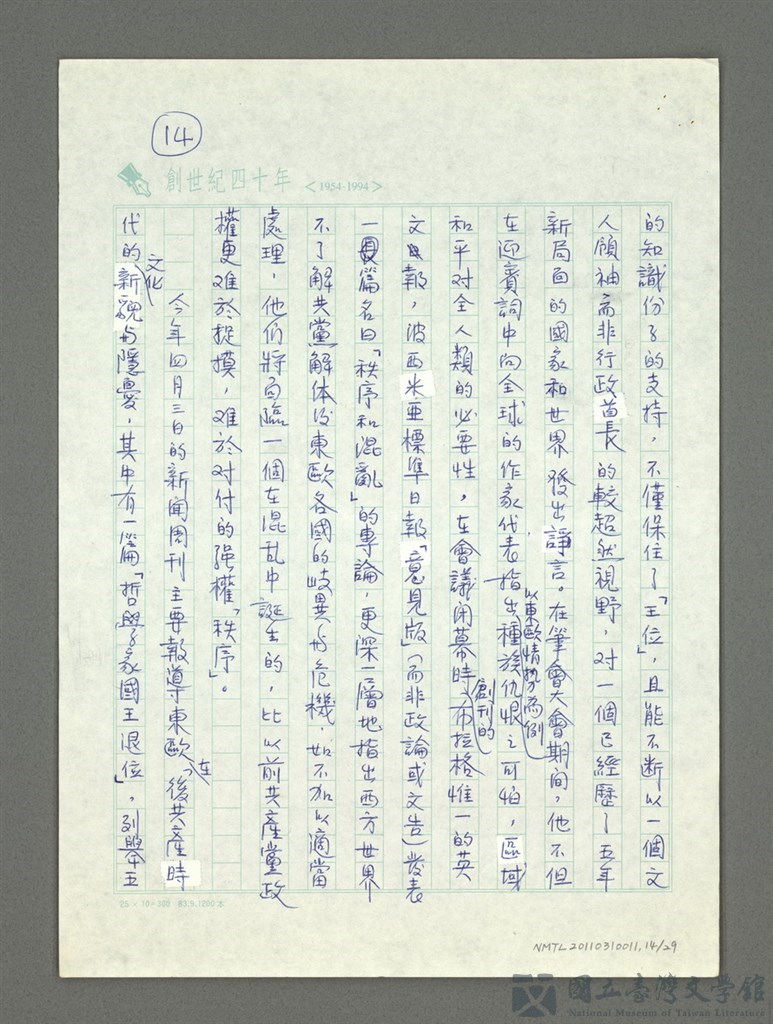 14
創世紀四十年 <1954-1994>
的知識份子的支持,不僅保住了「王位」,且能不斷以一個文
人領袖而非行政首長的較超然視野,對一個已經歷了五年
新局面的國家和世界發出諍言。在筆會大會期間,他不但
在迎賓詞中向全球的作家代表,以東歐情勢為例指出種族仇恨之可怕,區域
和平对全人類的必要性,在會議闭幕時,創刊的布拉格惟一的英
文報,波西米亚標準日報「意見版」(而非政論或文告)發表
一篇名曰「秩序和混亂」的專論,更深一層地指出西方世界
不了解共黨解体後東歐各國的歧異与危機,如不加以適當
處理,他们將面臨一個在混乱中誕生的,比以前共產黨政
權更难於捉摸,难於对付的強權「秩序」。
今年四月三日的新闻周刊主要報導東歐在「後共產時
代的新文化貌与隱憂,其中有一篇「哲學家國王退位」,列舉五
25×10=300 83.5.1200本
NMTL20110310011,14/29
國立臺灣文學館
National Museum of Taiwan Literature